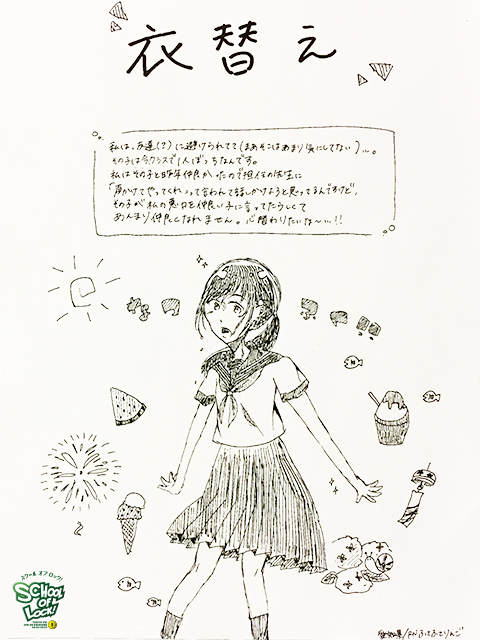 衣替え
私は、友達(?)に避けられてて(まあそこはあまり気にしてない)…。
その子は今クラスで1人ぼっちなんです。
私はその子と昨年仲良かったので担任の先生に
「声かけてやってくれ」って言われて話しかけようと思ってるんですけど、
その子が私の悪口を仲良い子に言ってたらしくて
あんまり仲良くなれません。心替わりたいな〜…!!
スクール オブ ロック!
SCHOOL OF LOCK!